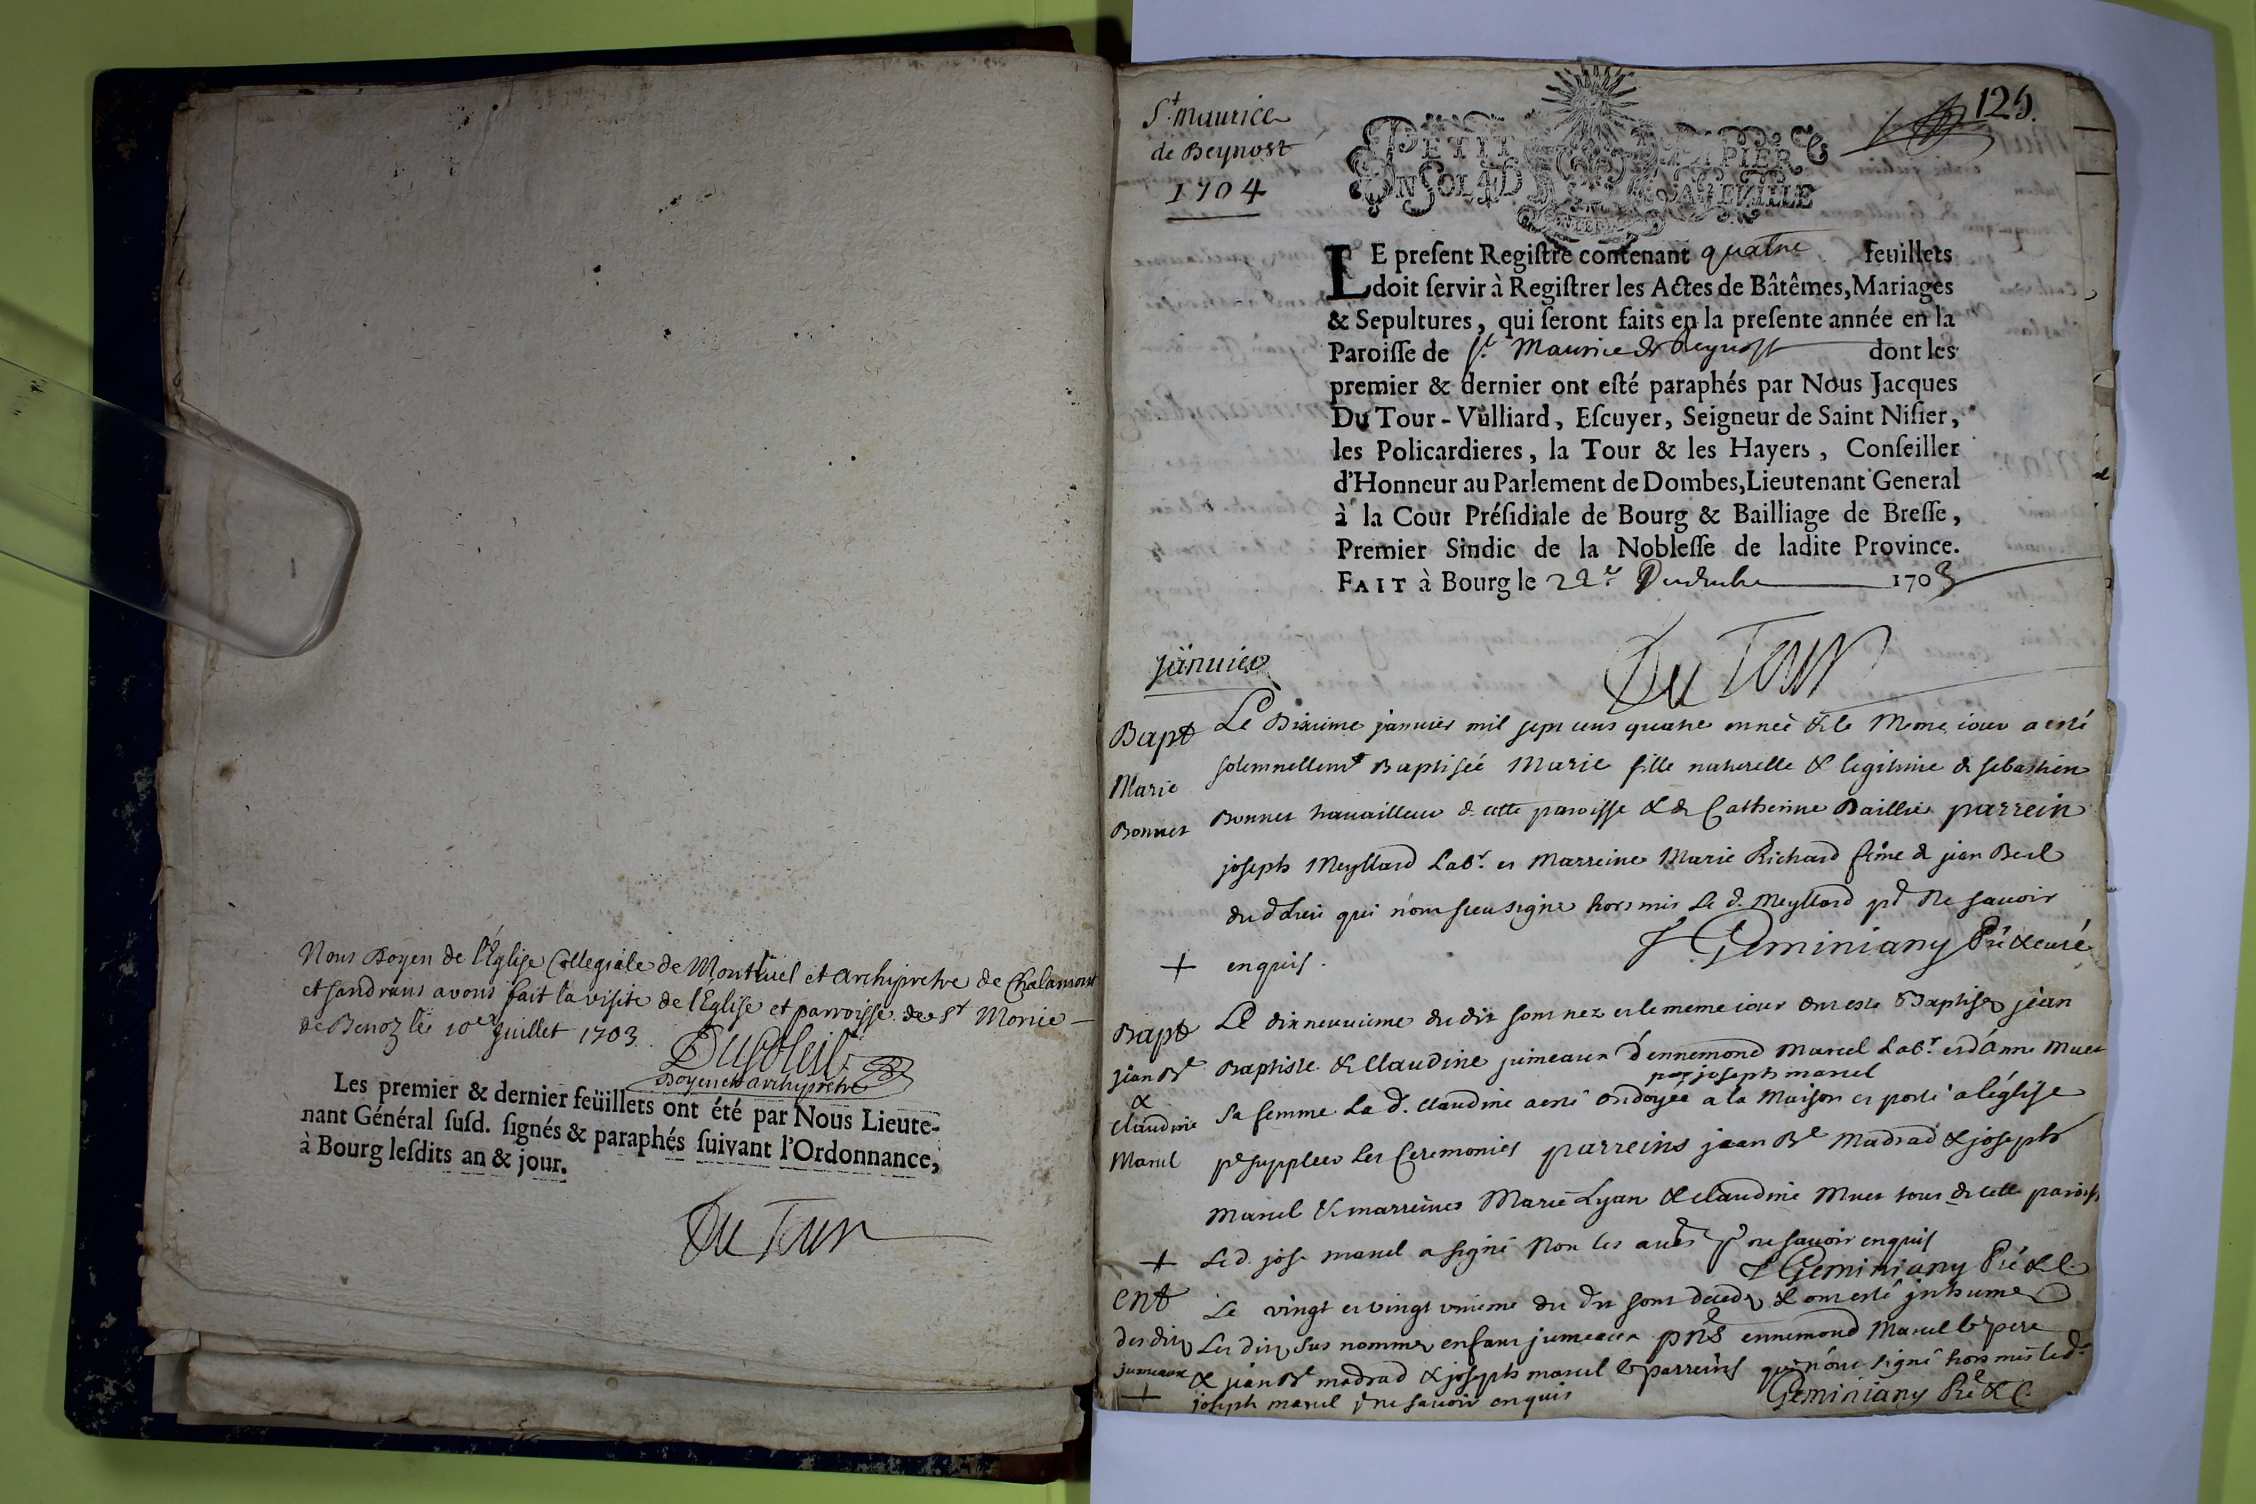 Nous Doyen de l'Eglise Collegiale de Montluel et archipretre de Chalamont
et sandrans avons fait la visite de l'Eglise et parroisse de St Morice
de Benoz le 10er Juillet 1703.
Dusoleil
Doyen et archypretre
Les premier & dernier feüillets ont été par Nous Lieute-
nant Général susd. signés & paraphés suivant l'Ordonnance,
à Bourg lesdits an & jour.
Du Tour
St. maurice
de Beynost
1704
125.
PETIT PAPIER
UN SOL 4 D LA FEUILLE
LE present Registre contenant quatre feüillets
doit servir à Registrer les Actes de Bâtêmes, Mariages
& Sepultures, qui seront faits en la presente année en la
Paroisse de st. Maurice de Beynost dont les
premier & dernier ont esté paraphés par Nous Jacques
Du Tour-Vulliard, Escuyer, Seigneur de Saint Nisier,
les Policardieres, la Tour & les Hayers, Conseiller
d'Honneur au Parlement de Dombes, Lieutenant General
à la Cour Présidiale de Bourg & Bailliage de Bresse,
Premier Sindic de la Noblesse de ladite Province.
FAIT à Bourg le 1703
Du Tour
janvier
Bapt
Marie
Bonnet
Le Dixieme janvier mil sept cens quatre est néé & le Meme iour a esté
solemnellemt Baptiséé Marie fille naturelle & legitime de sebastien
Bonnet travailleur de cette paroisse & de Catherine Baillie parrein
joseph Meyllard Labr. et Marreine Marie Richard féme de jean Berl
du d lieu qui n'ont sceu signer hors mis Le d. Meyllard pr Ne savoir
+ enquis.
Geminiany Pré & curé
Bapt
jean Bte
&
claudine
Manel
Le dixneuvieme du dit sont nez et le meme iour ont esté Baptisez jean
Baptiste & Claudine jumeaux d'ennemond Manel Labr. et d'Anne Muet
par joseph manel
sa femme La d. claudine a esté ondoyéé a la Maison et porté a l'église
pr suppleer Les Ceremonies parreins jean Bte Madrad & joseph
Manel & marreines Marie Lyan & claudine Muet tous de cette paroisse
+ Le d. jos. manel a signé Non les aues pr ne savoir enquis
Geminiany Pré & C.
ent
des dits
jumeaux
+
Le vingt et vingt unieme du dit sont decedez & ont esté inhumez
Les dits sus nommez enfans jumeaux pnts ennemond Manel le pere
& jean Bte madrad & joseph manel les parreins qui n'ont signé hors mis le d.
joseph manel pr ne savoir enquis
Geminiany Pré & C.